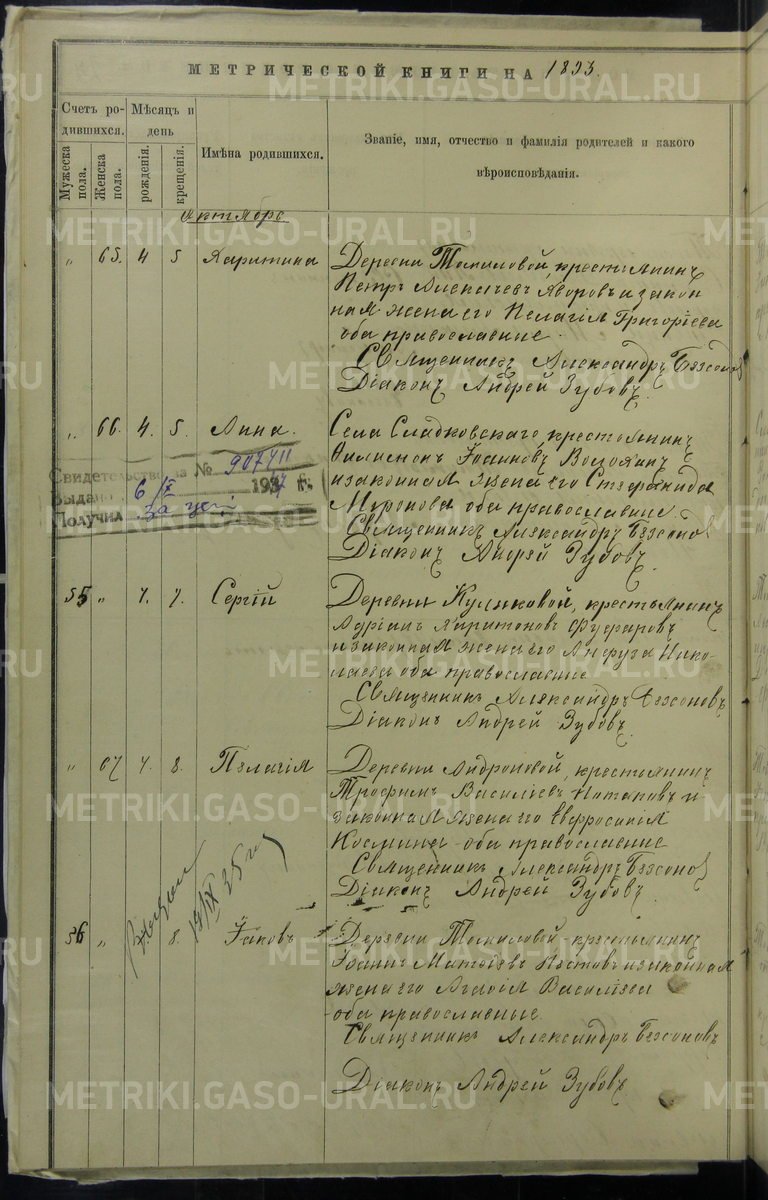 МЕТРИЧЕСКОЙ КНИГИ НА 1893.
Счетъ родившихся.
Мѣсяцъ и день
Имѣна родившихся.
Званіе, имя, отчество и фамилія родителей и какого вѣроисповѣданія.
Мужеска пола.
Женска пола.
рожденія.
крещенія.
Октябрь
" 65. 4 5 Харитина
Деревни Томиловой, крестьянинъ
Петръ Алексѣевъ Яворовъ и закон
ная жена его Пелагія Григоріева
оба православные.
Священникъ Александръ Безсонов
Діаконъ Андрей Зубовъ.
" 66. 4. 5. Анна.
Села Сладковскаго, крестьянинъ
Филимонъ Іоанновъ
и законная жена его Стефанида
Миронова оба православные.
Священникъ Александръ Безсонов
Діаконъ Андрей Зубовъ
Свидетельство за № 907411
Выдано 6 1937 г.
Получил
55 " 7. 7. Сергій
Деревни Куликовой, крестьянинъ
Адріанъ Харитоновъ Фуфаровъ
и законная жена его Анфуза Нико-
лаева оба православные
Священникъ Александръ Безсоновъ
Діаконъ Андрей Зубовъ
" 67 7. 8. Пелагія
Деревни Андроновой, крестьянинъ
Трофимъ Василіевъ Потаповъ и
законная жена его Евфросинія
Космина оба православные
Священникъ Александръ Безсонов
Діаконъ Андрей Зубовъ.
56 " 8. Іаковъ
Деревни Томиловой, крестьянинъ
Іоаннъ Матѳіевъ и законная
жена его Агафія Василіева
оба православные.
Священникъ Александръ Безсоновъ
Діаконъ Андрей Зубовъ
METRIKI.GASO-URAL.RU